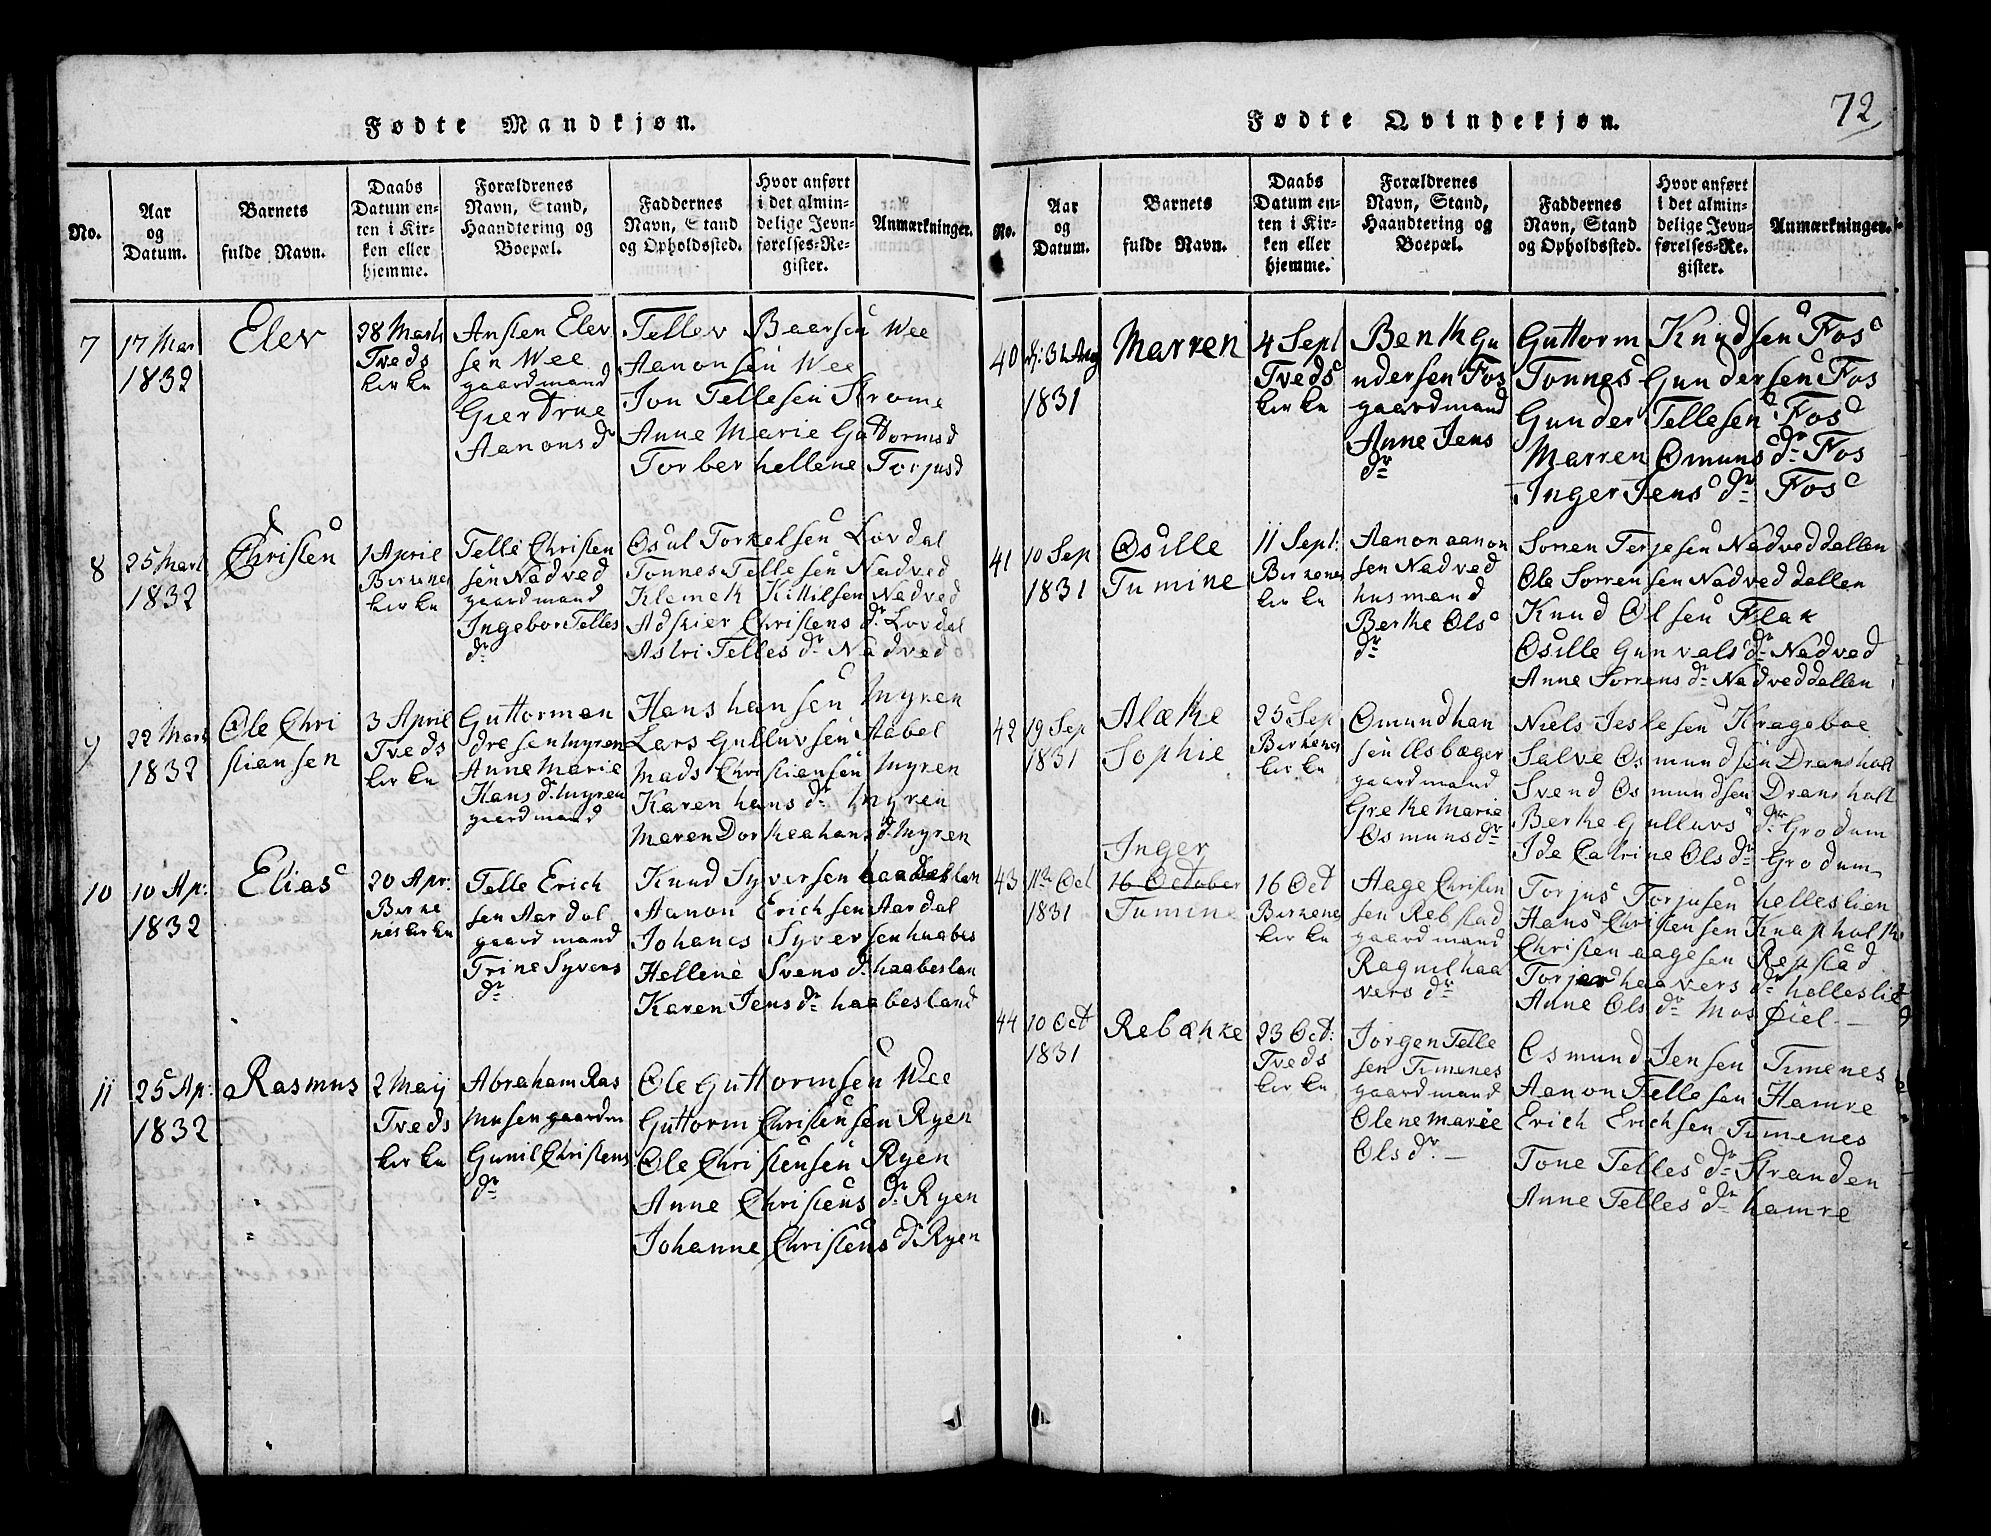 72
Fødte Mandkjøn.
No.
Aar og Datum.
Barnets fulde Navn.
Daabs Datum enten i Kirken eller hjemme.
Forældrenes Navn, Stand, Haandtering og Boepæl.
Faddernes Navn, Stand og Opholdssted.
Hvor anført i det almindelige Jevnførelses-Register.
Anmærkninger.
7
17 Mar
1832
Elev
28 Mart
Tveds
kirke
Ansten Elev
sen Wee
gaardmand
Giertrue
Aanonsdr
Tellev Baarsen Wee
Aanonsen Wee
Jon Tellesen Strome
Anne Marie Guttormsd
Torber hellene Torjusd
8
25 Mart
1832
Christen
1 April
Birkenes
kirke
Telle Christen
sen Nadved
gaardmand
Ingebor Telles
dr
Osul Torkelsen Lovdal
Tonnes Tellesen Nadved
Klemet Kittilsen Nadved
Adskier Christens dr Lovdal
Astri Telles dr Nadved
9
22 Mars
1832
Ole Chri
stiansen
3 April
Tveds
kirke
Guttorm an
dresen Myren
Anne Marie
Hans d. Myren
gaardmand
Hans hansen Myren
Lars Gulluvsen Aabel
Mads Christiansen Myren
Karen hans dr Myren
Maren Dorthea hans d. Myren
10
10 Ap:
1832
Elias
20 Apr:
Birke
nes kirke
Telle Erich
sen Aardal
gaardmand
Trine Syvers
dr
Knud Syversen haabeslan
Aanon Erichsen Aardal
Johanes Syversen haabes
Hellene Svens d. haabeslan
Karen Jens dr haabesland
11
25 Ap:
1832
Rasmus
2 Maij
Tveds
kirke
Abraham Ras
musen gaardm
Gunil Christens
dr
Ole Guttormsen Wee
Guttorm Christensen Ryen
Ole Christensen Ryen
Anne Christens dr Ryen
Johanne Christens d. Ryen
Fødte Qvindekjøn.
No.
Aar og Datum.
Barnets fulde Navn.
Daabs Datum enten i Kirken eller hjemme.
Forældrenes Navn, Stand, Haandtering og Boepæl.
Faddernes Navn, Stand og Opholdssted.
Hvor anført i det almindelige Jevnførelses-Register.
Anmærkninger.
40
31 Aug
1831
Marren
4 Sept
Tveds
kirke
Bent Gu
ndersen Fos
gaardmand
Anne Jens
dr
Guttorm Knudsen Fos
Tonnes Gundersen Fos
Gunder Tellesen Fos
Marren Omuns dr Fos
Inger Jens dr Fos
41
10 Sep
1831
Osille
Tumine
11 Sept:
Birkenes
kirke
Aanon aanon
sen Nadved
husmand
Berthe Ols
dr
Sorren Terjesen Nadveddallen
Ole Sorrensen Nadveddallen
Knud Olsen Flak
Osille Gunvals dr Nadved
Anne Sorrens dr Nadveddallen
42
19 Sep
1831
Alæthe
Sophie
25 Sep
Birkenes
kirke
Omund han
sen Usbæger
gaardmand
Grethe Marie
Osmuns dr
Niels Jeskesen Krageboe
Salve Osmundsen Dransholt
Svend Osmundsen Dransholt
Berthe Gulluvs dr Grodum
Ide Catrine Ols dr Grodum
43
11te Oct
1831
Inger
16 October
Tumine
16 Oct
Birkenes
kirke
Aage Christen
sen Rebstad
gaardmand
Ragnil haa
vers dr
Torjus Torjusen helleslien
Hans Christensen Knapholthe
Christen aagesen Repstad
haavers dr helleslie
Anne Ols dr Mosfiel
44
10 Oct
1831
Rebække
23 Oct:
Tveds
kirke
Jorgen Telle
sen Timenes
gaardmand
Olene Marie
Ols dr
Osmund Jensen Timenes
Aanon Tellesen Hamre
Erich Erichsen Timenes
Tone Telles dr Stranden
Anne Telles dr hamre